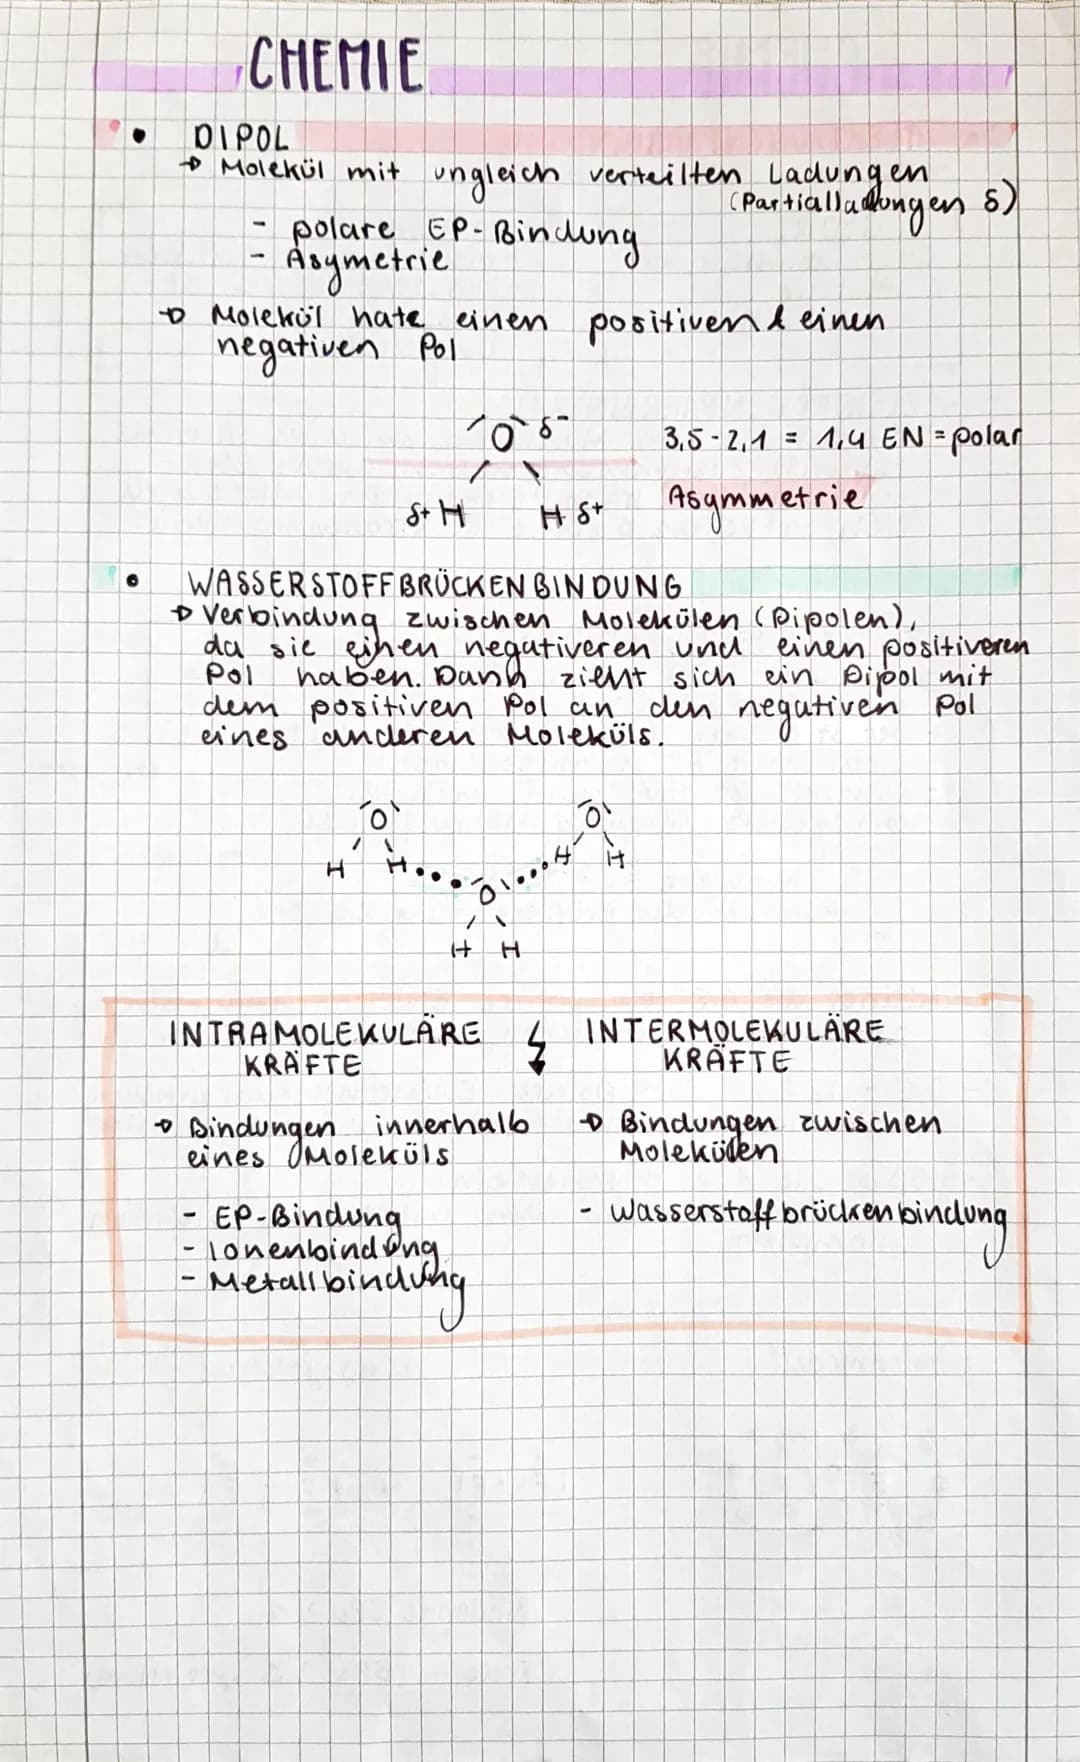 CHEMIE
• DIPOL
→ Molekül mit ungleich verteilten Ladungen
(Partialladungen δ)
- polare EP-Bindung
- Asymetrie
→ Molekül hate einen positiven & einen
negativen Pol
O δ-
3,5-2,1 = 1,4 EN = polar
δ+ H H δ+
Asymmetrie
• WASSERSTOFFBRÜCKENBINDUNG
→ Verbindung zwischen Molekülen (Dipolen),
da sie einen negativeren und einen positiveren
Pol haben. Dann zieht sich ein Dipol mit
dem positiven Pol an den negativen Pol
eines anderen Moleküls.
O O
H H H H
O
H H
INTRAMOLEKULÄRE
KRÄFTE
INTERMOLEKULÄRE
KRÄFTE
→ Bindungen innerhalb
eines Moleküls
- EP-Bindung
- Ionenbindung
- Metallbindung
→ Bindungen zwischen
Molekülen
- Wasserstoffbrückenbindung